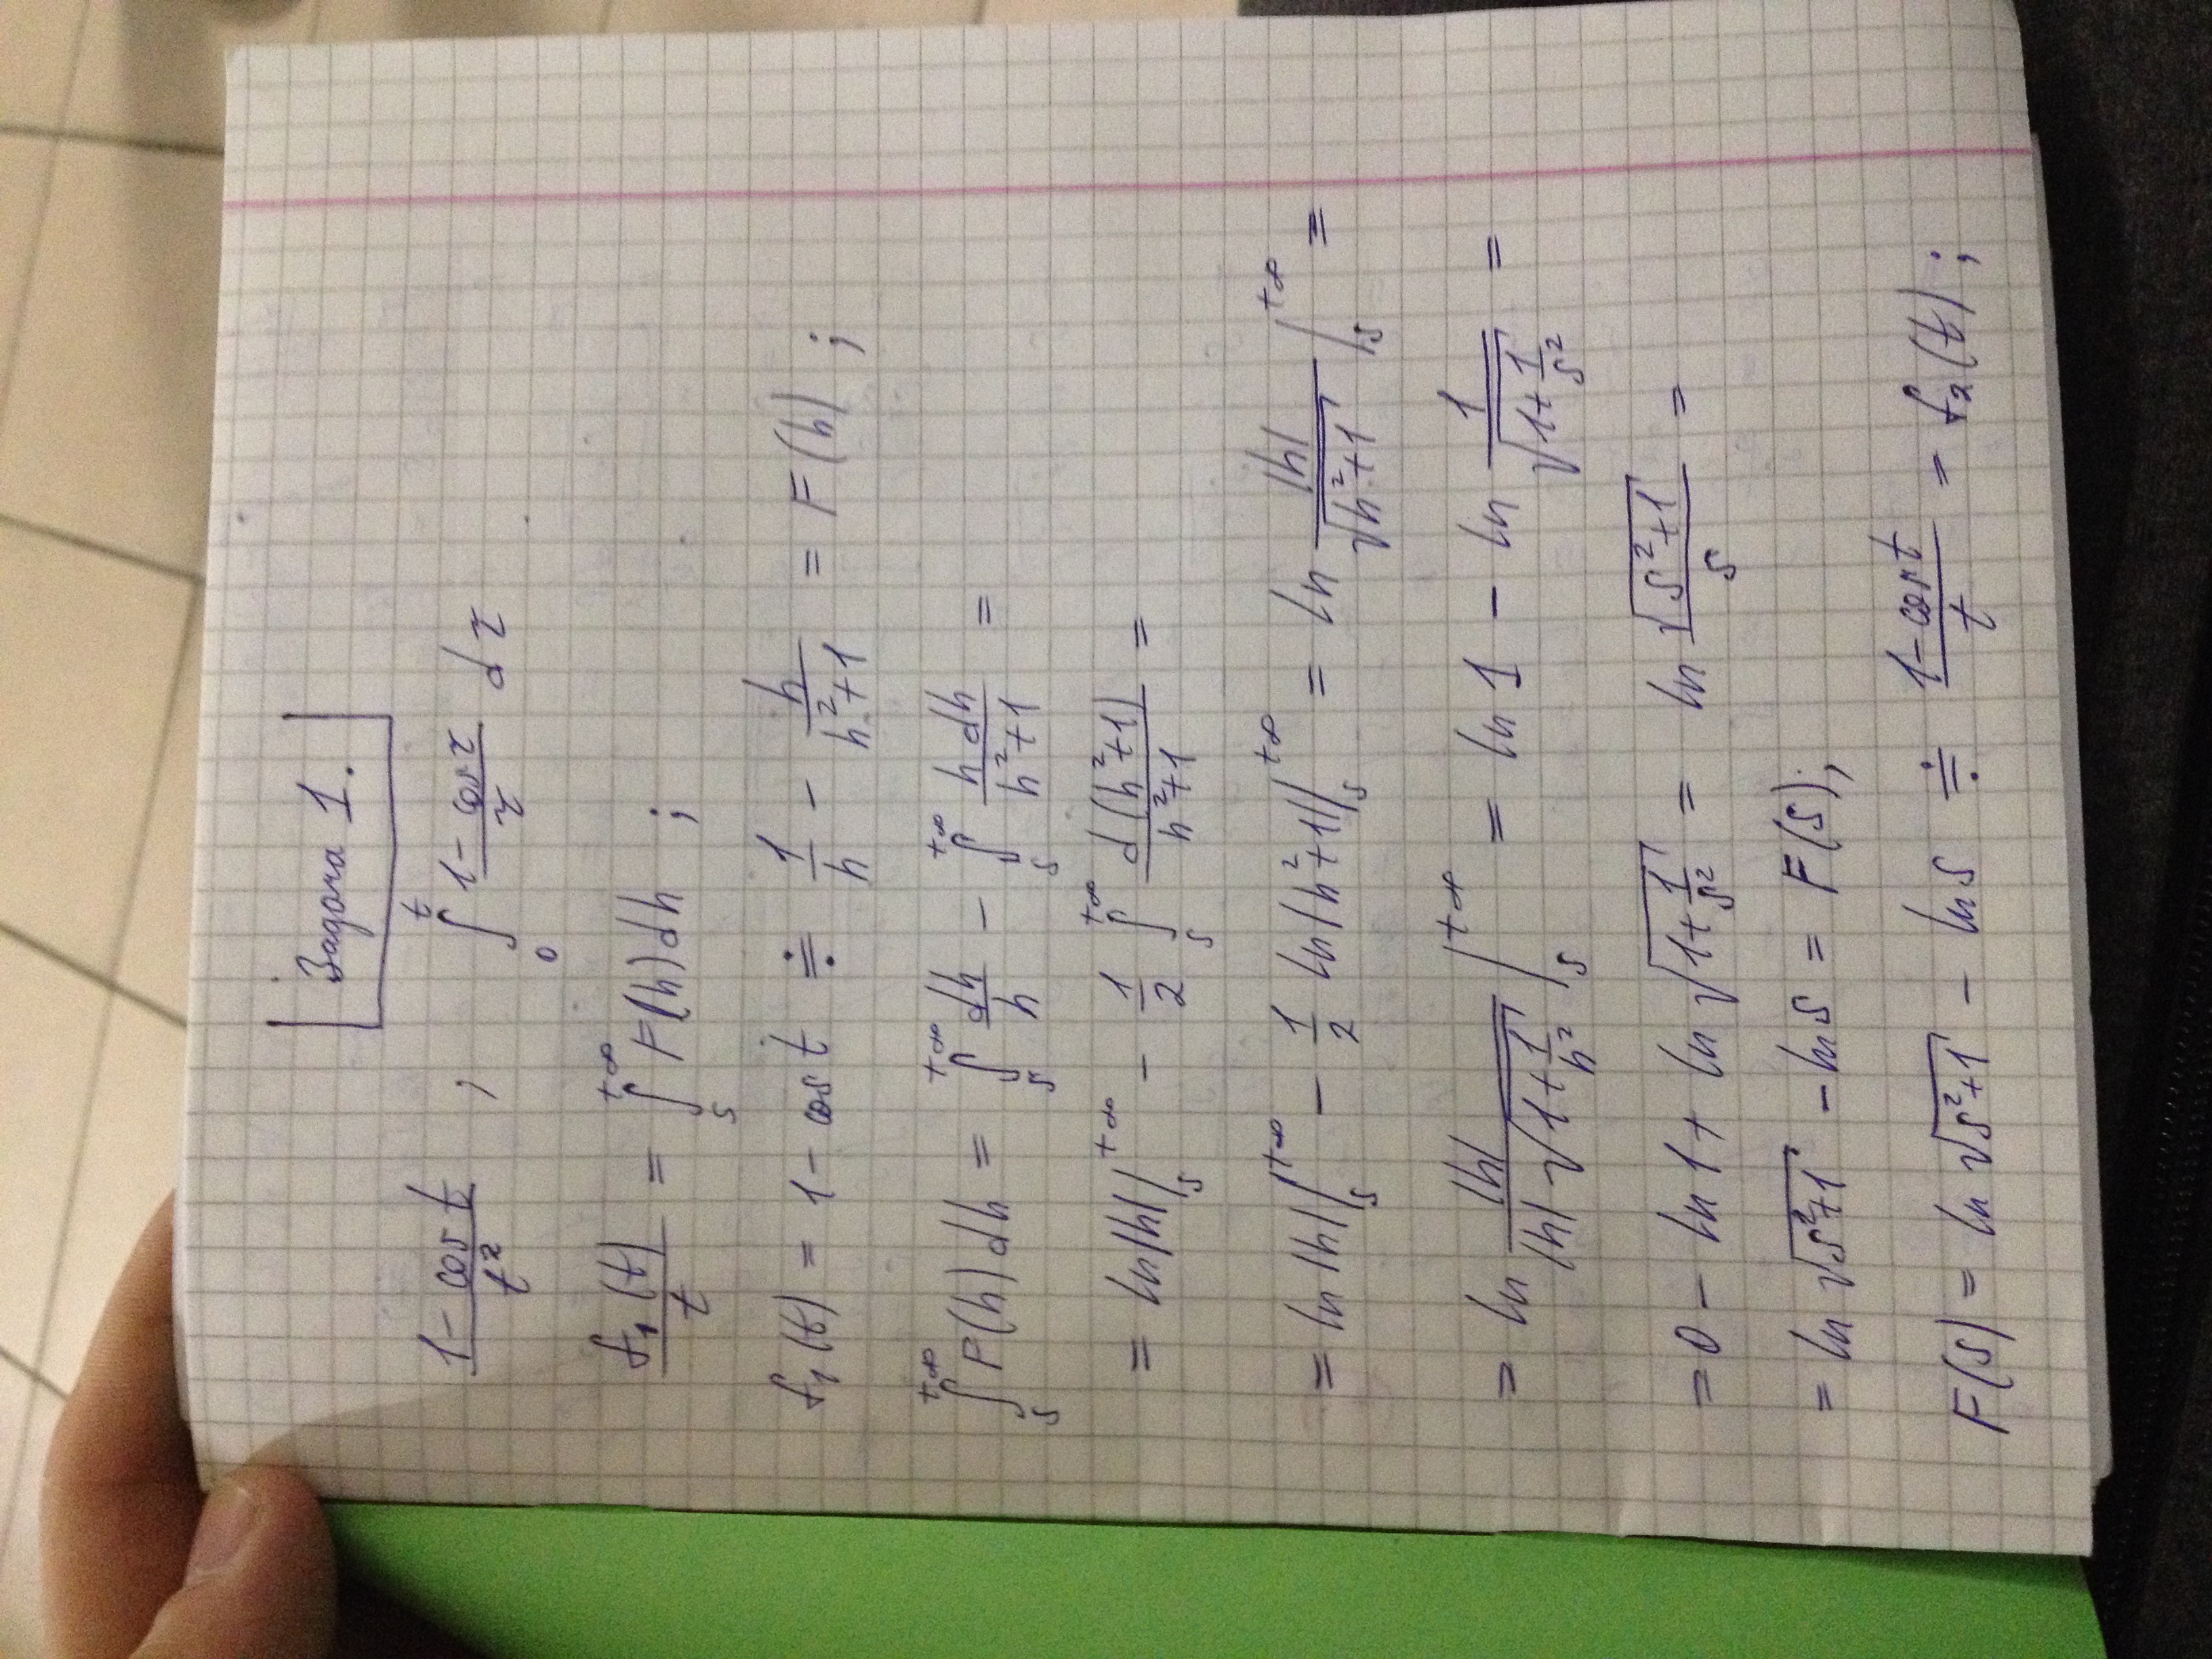 Задача 1.
\frac{1 - cos t}{t^2} , \int_0^t \frac{1 - cos τ}{τ} dτ
\frac{f_1(t)}{t} = \int_s^{+∞} F(h) dh ;
f_1(t) = 1 - cos t ≓ \frac{1}{h} - \frac{h}{h^2+1} = F(h) ;
\int_s^{+∞} F(h) dh = \int_s^{+∞} \frac{dh}{h} - \int_s^{+∞} \frac{h dh}{h^2+1} =
= ln|h| |_s^{+∞} - \frac{1}{2} \int_s^{+∞} \frac{d(h^2+1)}{h^2+1} =
= ln|h| |_s^{+∞} - \frac{1}{2} ln|h^2+1| |_s^{+∞} = ln \frac{|h|}{\sqrt{h^2+1}} |_s^{+∞} =
= ln \frac{|h|}{|h| \sqrt{1+\frac{1}{h^2}}} |_s^{+∞} = ln 1 - ln \frac{1}{\sqrt{1+\frac{1}{s^2}}} =
= 0 - ln 1 + ln \sqrt{1+\frac{1}{s^2}} = ln \frac{\sqrt{s^2+1}}{s} =
= ln \sqrt{s^2+1} - ln s = F(s) ;
F(s) = ln \sqrt{s^2+1} - ln s ≓ \frac{1 - cos t}{t} = f_2(t) ;